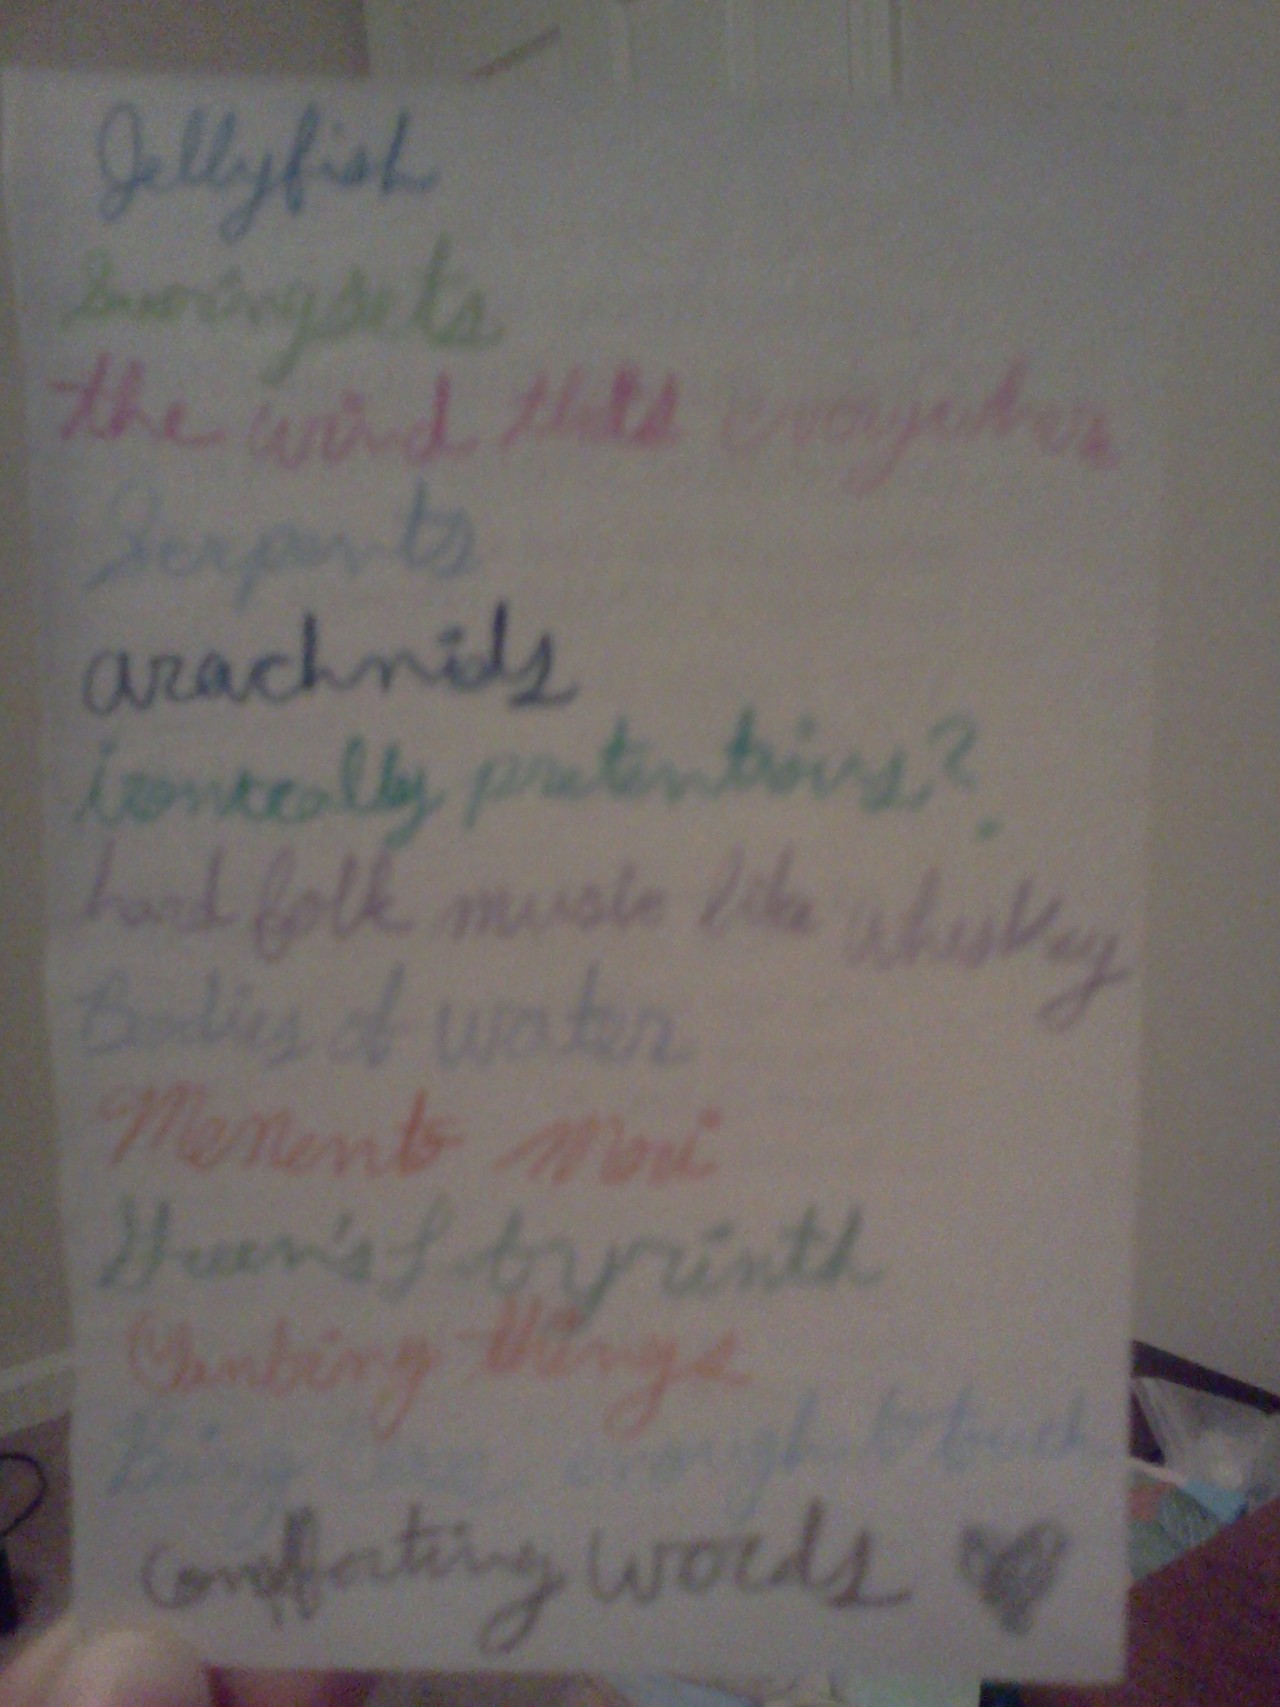 Jellyfish
Swingsets
the wind that's everywhere
Serpents
arachnids
ironically pretentious?
hard folk music like whiskey
Bodies of water
Memento Mori
Green's Lbyrinth
Climbing things
Being enough to touch
Comfforting words